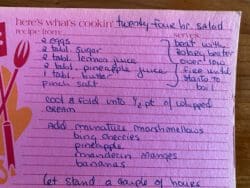 here's what's cookin' twenty four hr. salad
recipe from... serves
2 eggs
2 tabl sugar
2 tabl lemon juice
2 tabl pineapple juice
1 tabl. butter
pinch salt
beat with
rotary beater
over low
fire until
starts to
boil
cool & fold into ½ pt of whipped
cream
Add miniature marshmellows
bing cherries
pineapple
mandarin oranges
bananas
Let stand a couple of hours